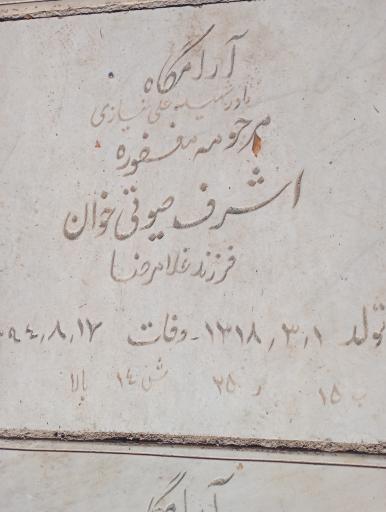 آرامگاه
مادر شهید علی نیازی
مرحومه مغفوره
اشرف صوتی خوان
فرزند غلامرضا
تولد ۱۳۱۸٫۳٫۱ - وفات ۹٤٫۸٫۱۷
ب ۱۵ ر ۲۵ ش ۱٤ بالا
آرامگاه